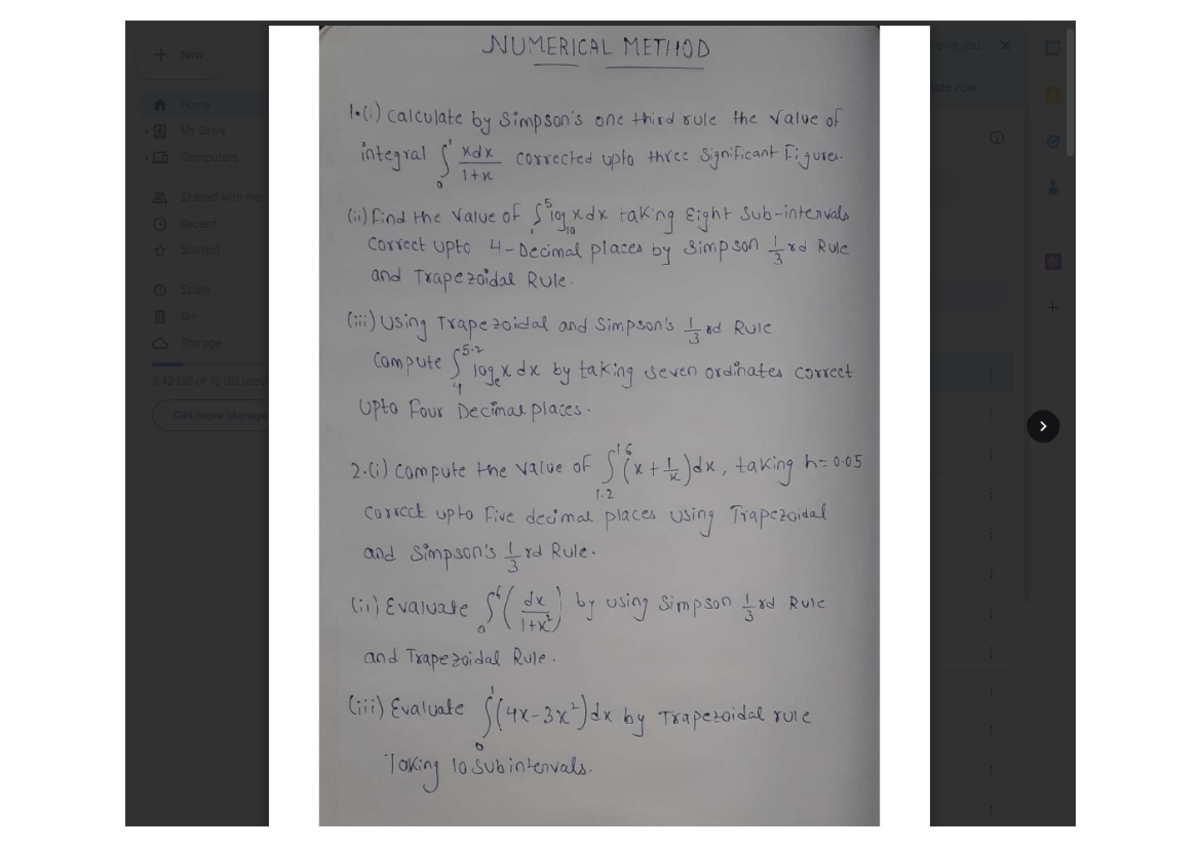 NUMERICAL METHOD
1.(i) Calculate by Simpson's one third rule the value of
integral ∫₀¹ xdx/1+x corrected upto three Significant Figures.
(ii) Find the value of ∫₁⁵ log₁₀ x dx taking Eight Sub-intervals
Correct upto 4-Decimal places by Simpson 1/3 rd Rule
and Trapezoidal Rule.
(iii) Using Trapezoidal and Simpson's 1/3 rd Rule
Compute ∫₄^5.2 logₑ x dx by taking seven ordinates correct
upto Four Decimal places.
2.(i) Compute the value of ∫ 1.2 16 (x + 1/x) dx, taking h=0.05
Correct upto Five decimal places using Trapezoidal
and Simpson's 1/3 rd Rule.
(ii) Evaluate ∫₀⁶ (dx/1+x²) by using Simpson 1/3 rd Rule
and Trapezoidal Rule.
(iii) Evaluate ∫₀¹ (4x-3x²)dx by Trapezoidal rule
Taking 10 Subintervals.
New
Home
My Drive
Computers
Shared with me
Recent
Starred
Spam
Bin
Storage
3.42 GB of 15 GB used
Get more storage
give you